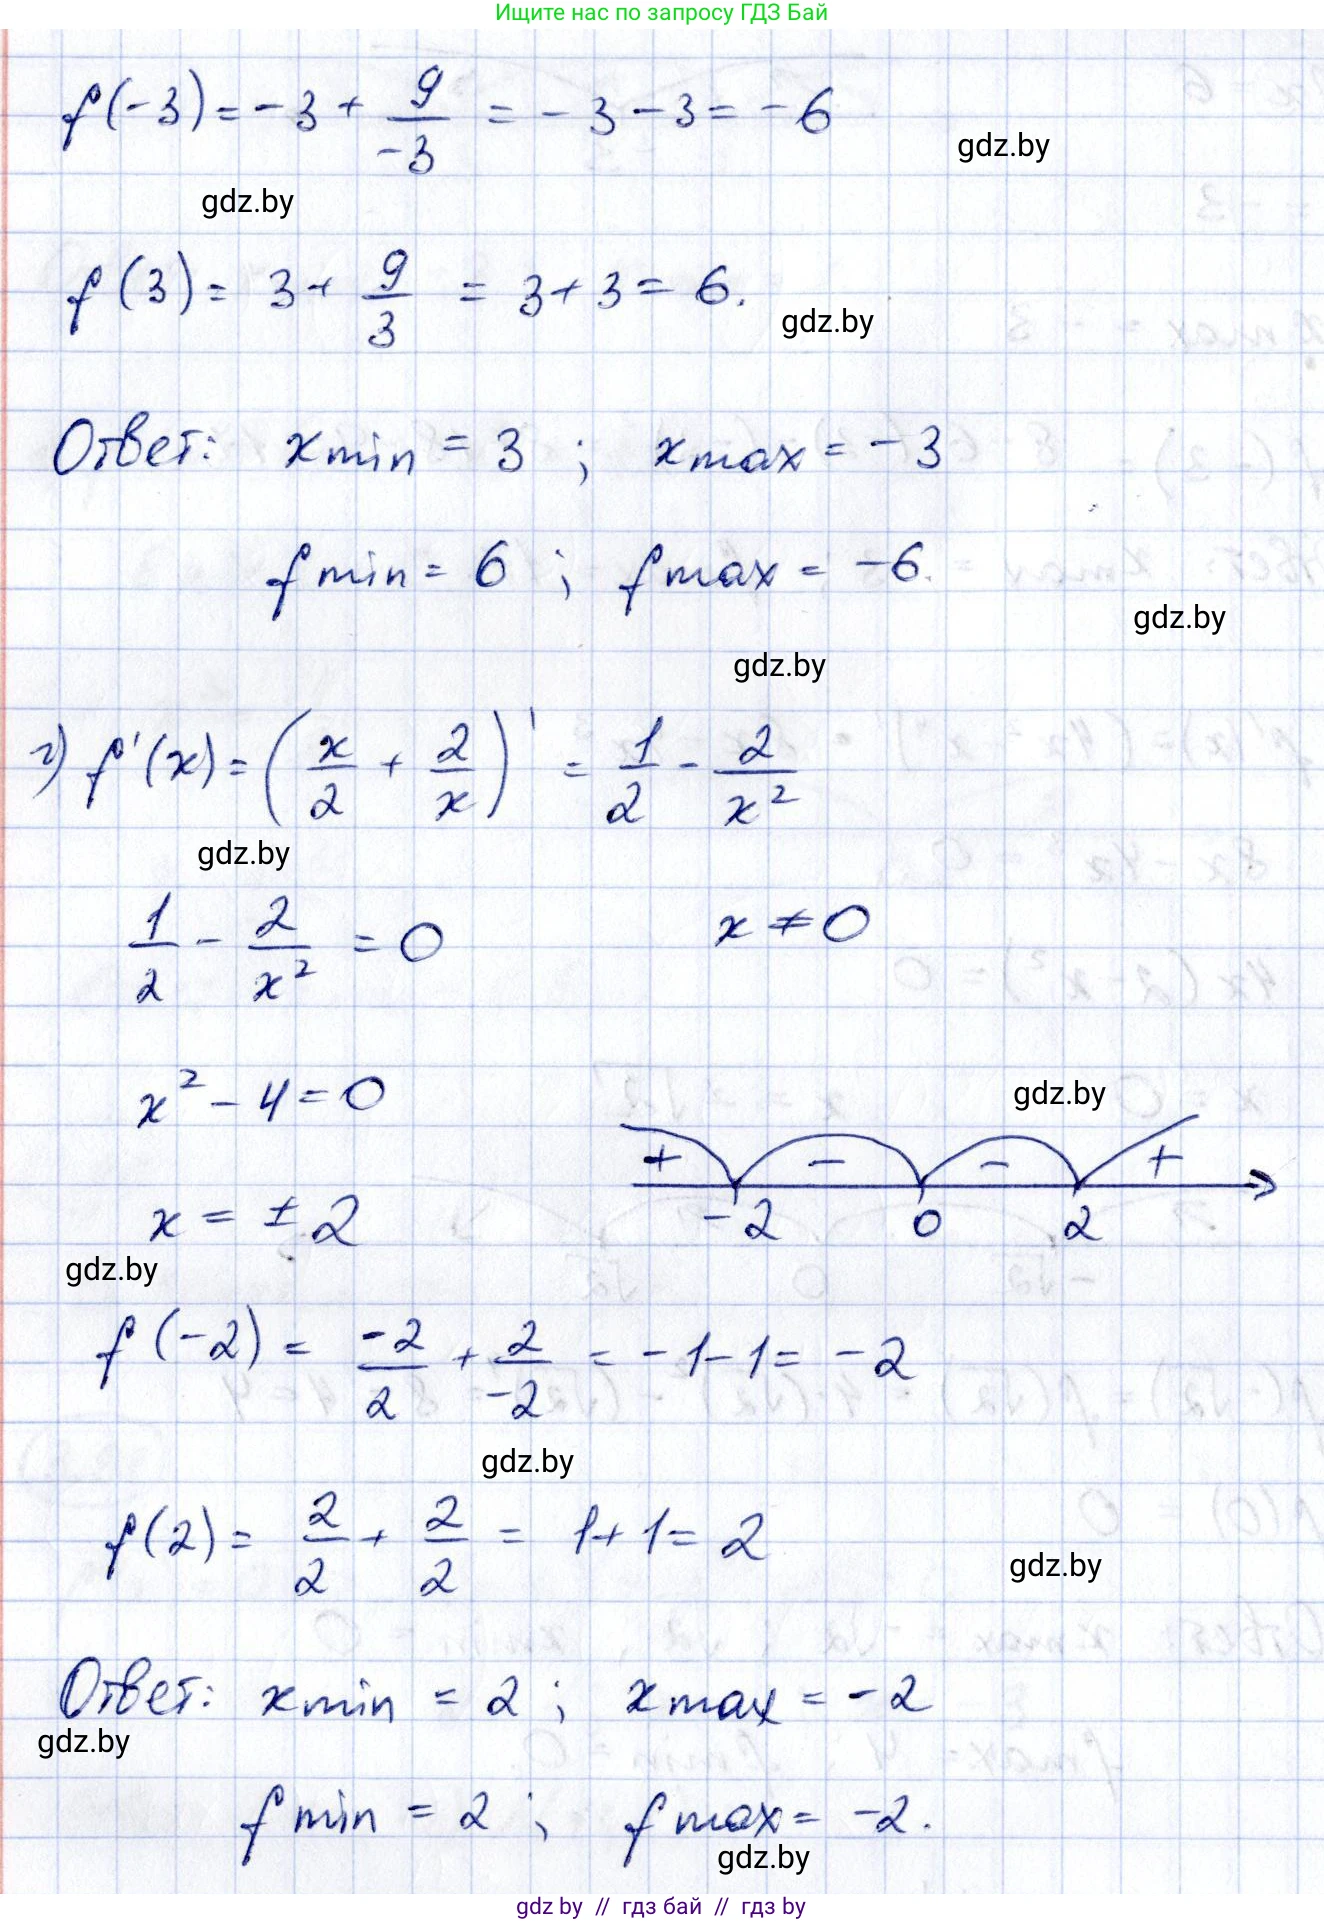 Ищите нас по запросу ГДЗ Бай
f(-3) = -3 + 9/-3 = -3 - 3 = -6
gdz.by
gdz.by
f(3) = 3 + 9/3 = 3 + 3 = 6.
gdz.by
Ответ: xmin = 3 ; xmax = -3
fmin = 6 ; fmax = -6.
gdz.by
gdz.by
г) f'(x) = (x/2 + 2/x)' = 1/2 - 2/x²
gdz.by
1/2 - 2/x² = 0 x ≠ 0
x² - 4 = 0
gdz.by
+ - - +
x = ±2
-2 0 2
gdz.by
f(-2) = -2/2 + 2/-2 = -1 - 1 = -2
gdz.by
f(2) = 2/2 + 2/2 = 1 + 1 = 2
gdz.by
Ответ: xmin = 2 ; xmax = -2
gdz.by
fmin = 2 ; fmax = -2.
gdz.by
gdz by // гдз бай // gdz by